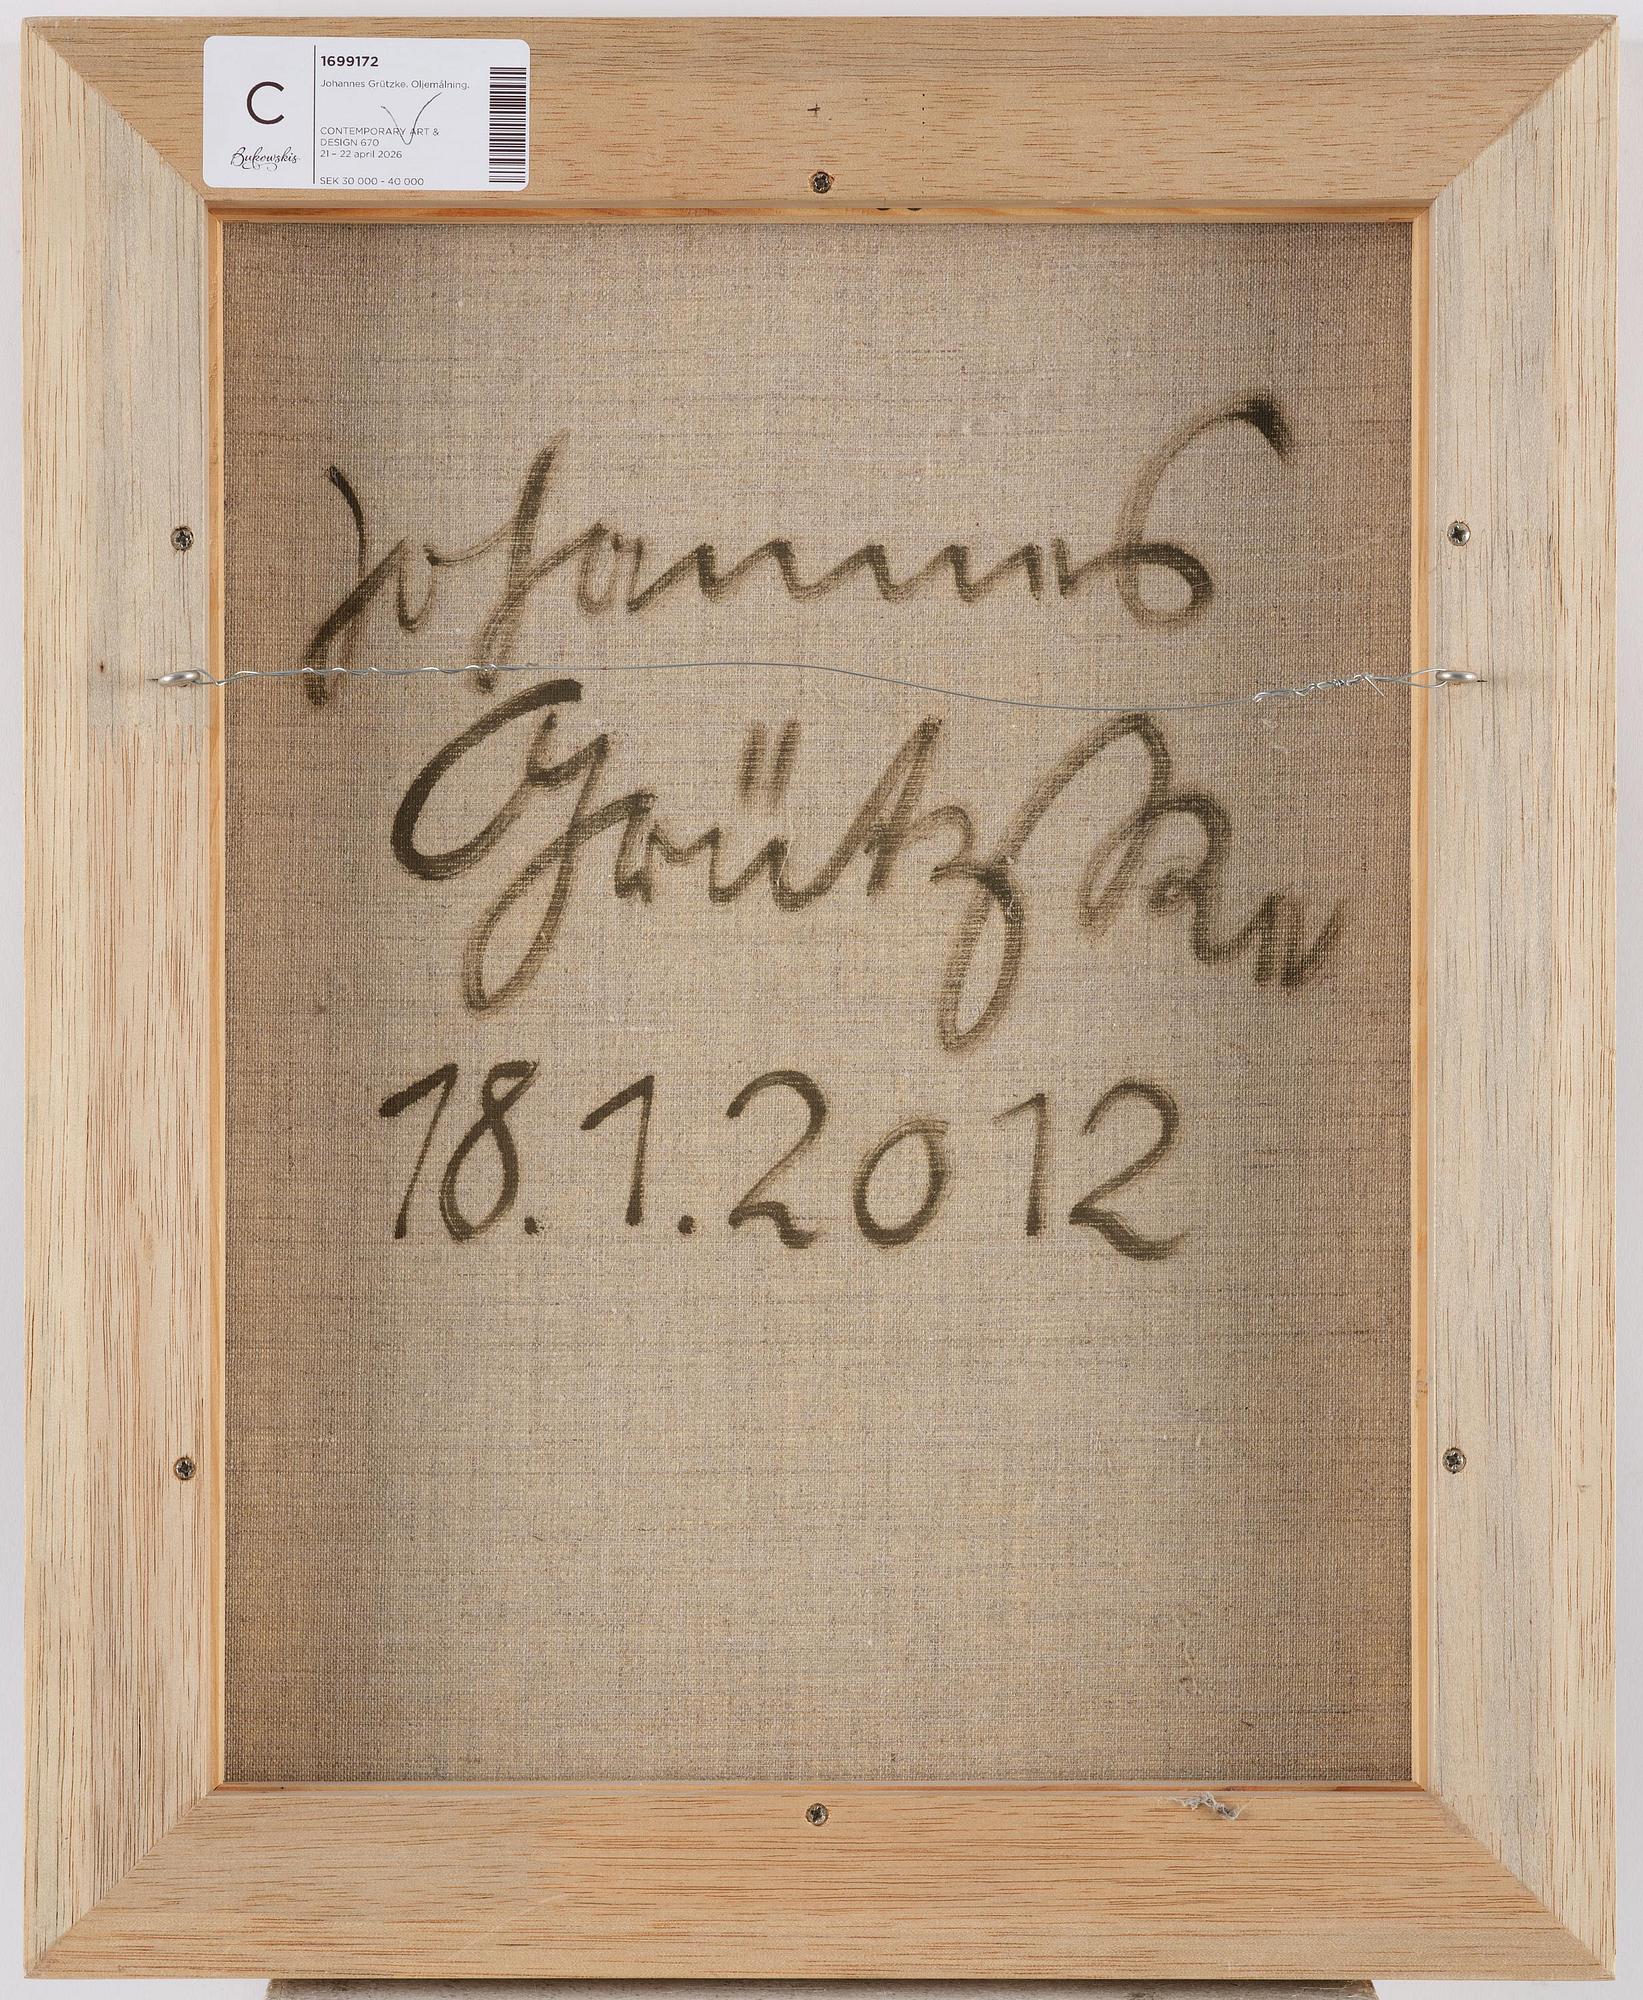 C
Bukowskis
1699172
Johannes Grützke. Oljemålning.
CONTEMPORARY ART &
DESIGN 670
21 – 22 april 2026
SEK 30 000 - 40 000
Johannes
Grützke
18.1.2012